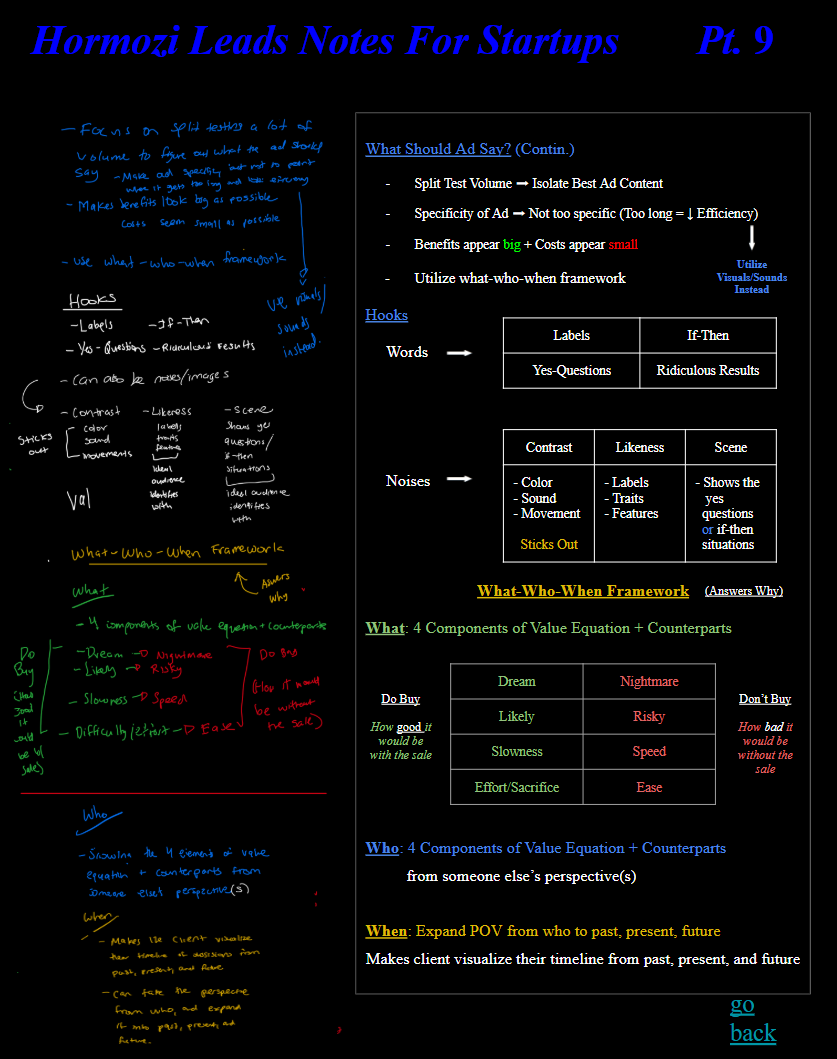 Hormozi Leads Notes For Startups Pt. 9
- Focus on split testing a lot of
volume to figure out what the ad should
say - Make ad specific, but not to point
where it gets too long and less efficiency
- Makes benefits look big as possible
costs seem small as possible
- use what-who-when framework
visuals/
sounds
instead.
Hooks
- Labels - If-Then
- Yes-Questions - Ridiculous results
- Can also be noises/images
- Contrast - Likeness - Scene
Sticks
out
color
sound
movements
labels
traits
feature
ideal
audience
identifies
with
shows yes
questions/
if-then
situations
ideal audience
identifies
with
Val
What-Who-When Framework
Answers
why
What
- 4 components of value equation + counterparts
Do
Buy
- Dream → Nightmare
- Likely → Risky
- Slowness → Speed
- Difficulty/Effort → Ease
Do Buy
(How it would
be without
the sale)
(How
good
it
would
be w/
sale)
Who
- Showing the 4 elements of value
equation + counterparts from
someone else's perspective(s)
When
- Makes the client visualize
their timeline of decisions from
past, present, and future
- Can take the perspective
from who, and expand
it into past, present, and
future.
What Should Ad Say? (Contin.)
- Split Test Volume → Isolate Best Ad Content
- Specificity of Ad → Not too specific (Too long = ↓ Efficiency)
- Benefits appear big + Costs appear small
- Utilize what-who-when framework
Utilize
Visuals/Sounds
Instead
Hooks
Words
Labels If-Then
Yes-Questions Ridiculous Results
Noises
Contrast Likeness Scene
- Color
- Sound
- Movement
Sticks Out
- Labels
- Traits
- Features
- Shows the
yes
questions
or if-then
situations
What-Who-When Framework (Answers Why)
What: 4 Components of Value Equation + Counterparts
Do Buy
How good it
would be
with the sale
Dream Nightmare
Likely Risky
Slowness Speed
Effort/Sacrifice Ease
Don't Buy
How bad it
would be
without the
sale
Who: 4 Components of Value Equation + Counterparts
from someone else's perspective(s)
When: Expand POV from who to past, present, future
Makes client visualize their timeline from past, present, and future
go
back